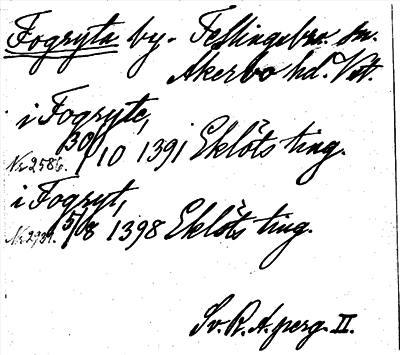 Fogryta by. Fellingsbro sn.
Åkerbo hd. Vstl.
i Fogryte,
Nr 2586. 30/10 1391 Eklöts ting.
i Fogryt,
Nr 2939. 5/8 1398 Eklöts ting.
Sv. R. A. perg. II.